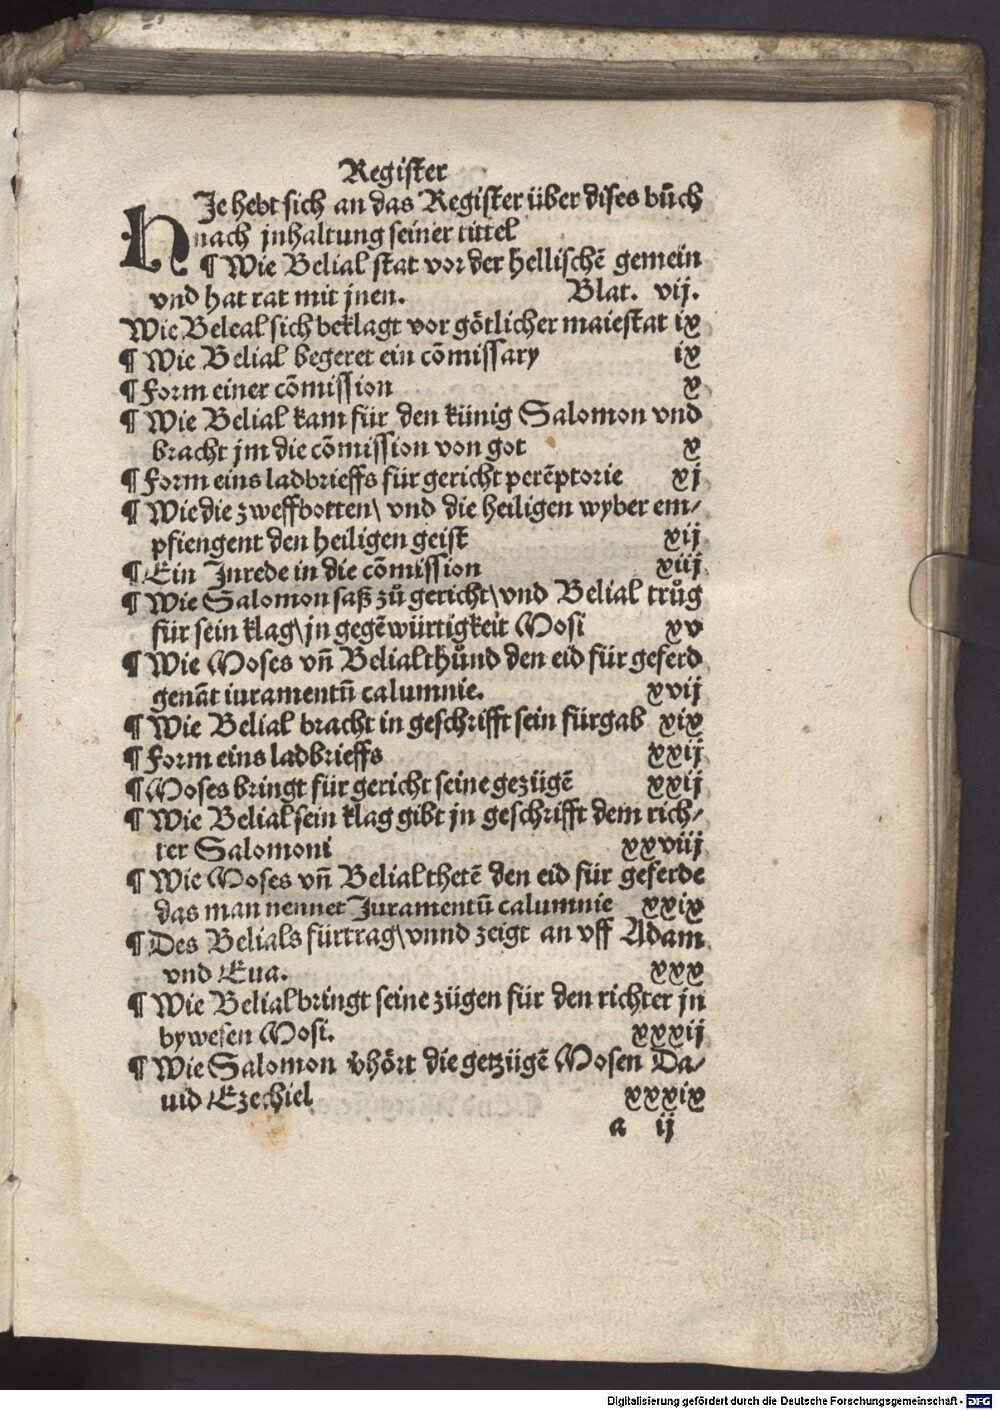 Register
HJe hebt sich an das Register über dises bůch
nach jnhaltung seiner tittel
¶ Wie Belial stat vor der hellischē gemein
vnd hat rat mit jnen. Blat. vij.
Wie Beleal sich beklagt vor götlicher maiestat ix
¶ Wie Belial begeret ein cōmissary ix
¶ Form einer cōmission x
¶ Wie Belial kam für den künig Salomon vnd
bracht jm die cōmission von got x
¶ Form eins ladbrieffs für gericht perēptorie xj
¶ Wie die zweffbotten\ vnd die heiligen wyber em/
pfiengent den heiligen geist xij
¶ Ein Inrede in die cōmission xiij
¶ Wie Salomon saß zů gericht\ vnd Belial trůg
für sein klag\ jn gegēwürtigkeit Mosi xv
¶ Wie Moses vn̄ Belial thůnd den eid für geferd
genāt iuramentū calumnie. xvij
¶ Wie Belial bracht in geschrifft sein fürgab xix
¶ Form eins ladbrieffs xxij
¶ Moses bringt für gericht seine gezügē xxij
¶ Wie Belial sein klag gibt jn geschrifft dem rich/
ter Salomoni xxviij
¶ Wie Moses vn̄ Belial thetē den eid für geferde
das man nennet Juramentū calumnie xxix
¶ Des Belials fürtrag\ vnnd zeigt an vff Adam
vnd Eua. xxx
¶ Wie Belial bringt seine zügen für den richter jn
bywesen Mosi. xxxij
¶ Wie Salomon v̄hört die getzügē Mosen Da/
uid Ezechiel xxxix
a ij
Digitalisierung gefördert durch die Deutsche Forschungsgemeinschaft - DFG